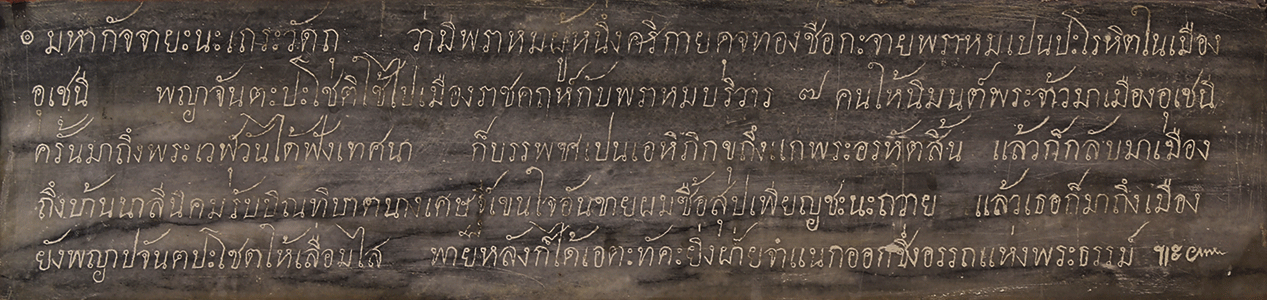 ๏ มหากัจจายะนะเถระวัดถุ ว่ามีพราหมผู้หนึ่งศรีกายดุจทองชือกะจายพราหมเปนปะโรหิตในเมือง
อุเชนี พญาจันตะปะโชติใช้ไปเมืองราชคฤห์กับพราหมบริวาร ๗ คนให้นิมนต์พระจ้าวมาเมืองอุเชนี
ครั้นมาถึงพระเวฬุวันได้ฟังเทศนา ก็บรรพชเปนเอหิภิกขุถึงะเกพระอรหัตสิ้น แล้วก็กลับมาเมือง
ถึงบ้านนาลีนิคมรับบิณทิบาตนางเศษฐีเขนใจอันขายผมซื้อสุปเพียญชะนะถวาย แล้วเธอก็มาถึงเมือง
ยังพญาปจันตปะโชตให้เลื่อมไส พายหลังก็ได้เอตะทัคะยิ่งฝ่ายจำแนกออกซึ่งอรรถแห่งพระธรรม์ ฯะ